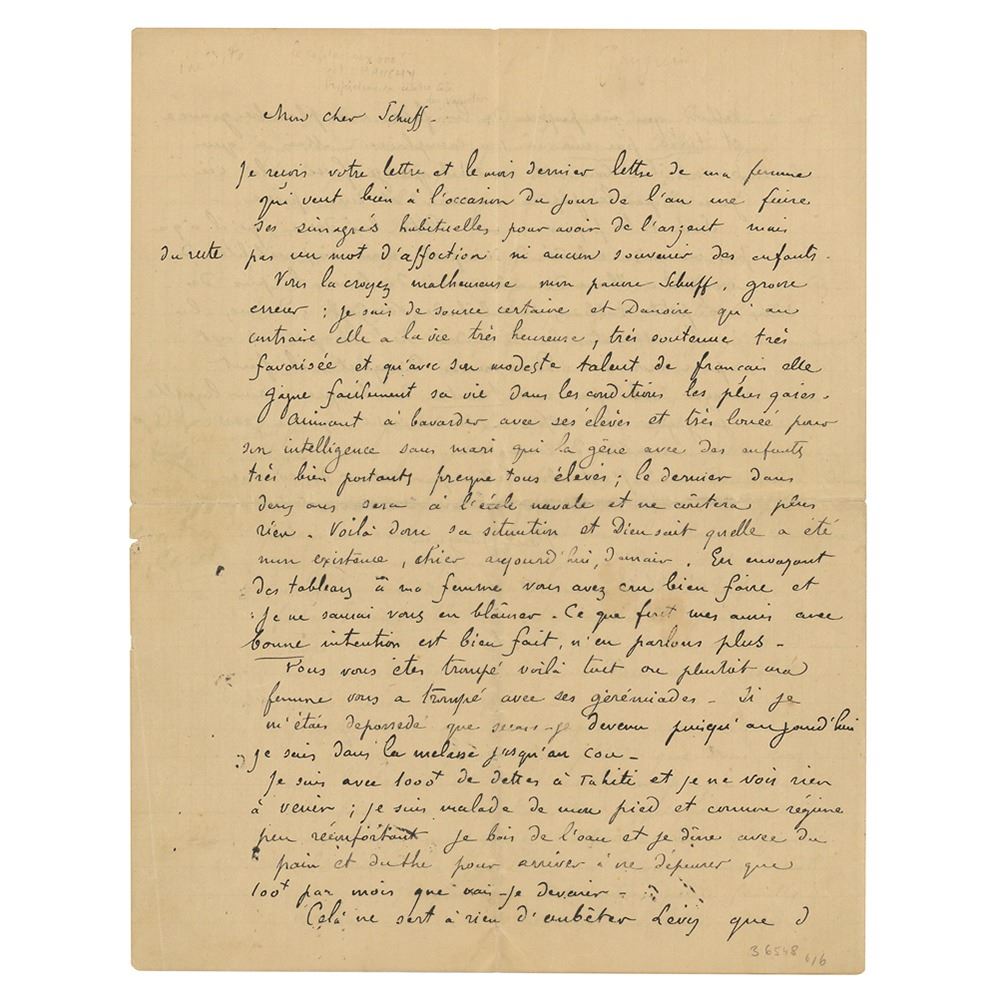 Mon cher Schuff -
Je reçois votre lettre et le mois dernier lettre de ma femme
qui veut bien à l'occasion du jour de l'an me faire
ses simagrés habituelles pour avoir de l'argent mais
du reste pas un mot d'affection ni aucun souvenir des enfants.
Vous la croyez malheureuse mon pauvre Schuff, grave
erreur ; je sais de source certaine et Danoise qu'au
contraire elle a la vie très heureuse, très soutenue très
favorisée et qu'avec son modeste talent de français elle
gagne facilement sa vie dans les conditions les plus gaies.
Aimant à bavarder avec ses élèves et très louée pour
son intelligence sans mari qui la gène avec des enfants
très bien portants presque tous élevés ; le dernier dans
deux ans sera à l'école navale et ne coûtera plus
rien. Voilà donc sa situation et Dieu sait quelle a été
mon existence, hier aujourd'hui, demain. En envoyant
des tableaux à ma femme vous avez cru bien faire et
je ne saurai vous en blâmer. Ce que font mes amis avec
bonne intention est bien fait, n'en parlons plus -
Vous vous êtes trompé voilà tout ou plutôt ma
femme vous a trompé avec ses gérémiades - Si je
m'étais depossedé que serais-je devenu puisqu'aujourd'hui
je suis dans la melasse jusqu'au cou -
Je suis avec 1000f de dettes à Tahiti et je ne vois rien
à venir ; je suis malade de mon pied et comme régime
peu réconfortant je bois de l'eau et je dîne avec du
pain et du thé pour arriver à ne dépenser que
100f par mois que vais-je devenir -
Celà ne sert à rien d'embêter Lévy que
36548 6/6